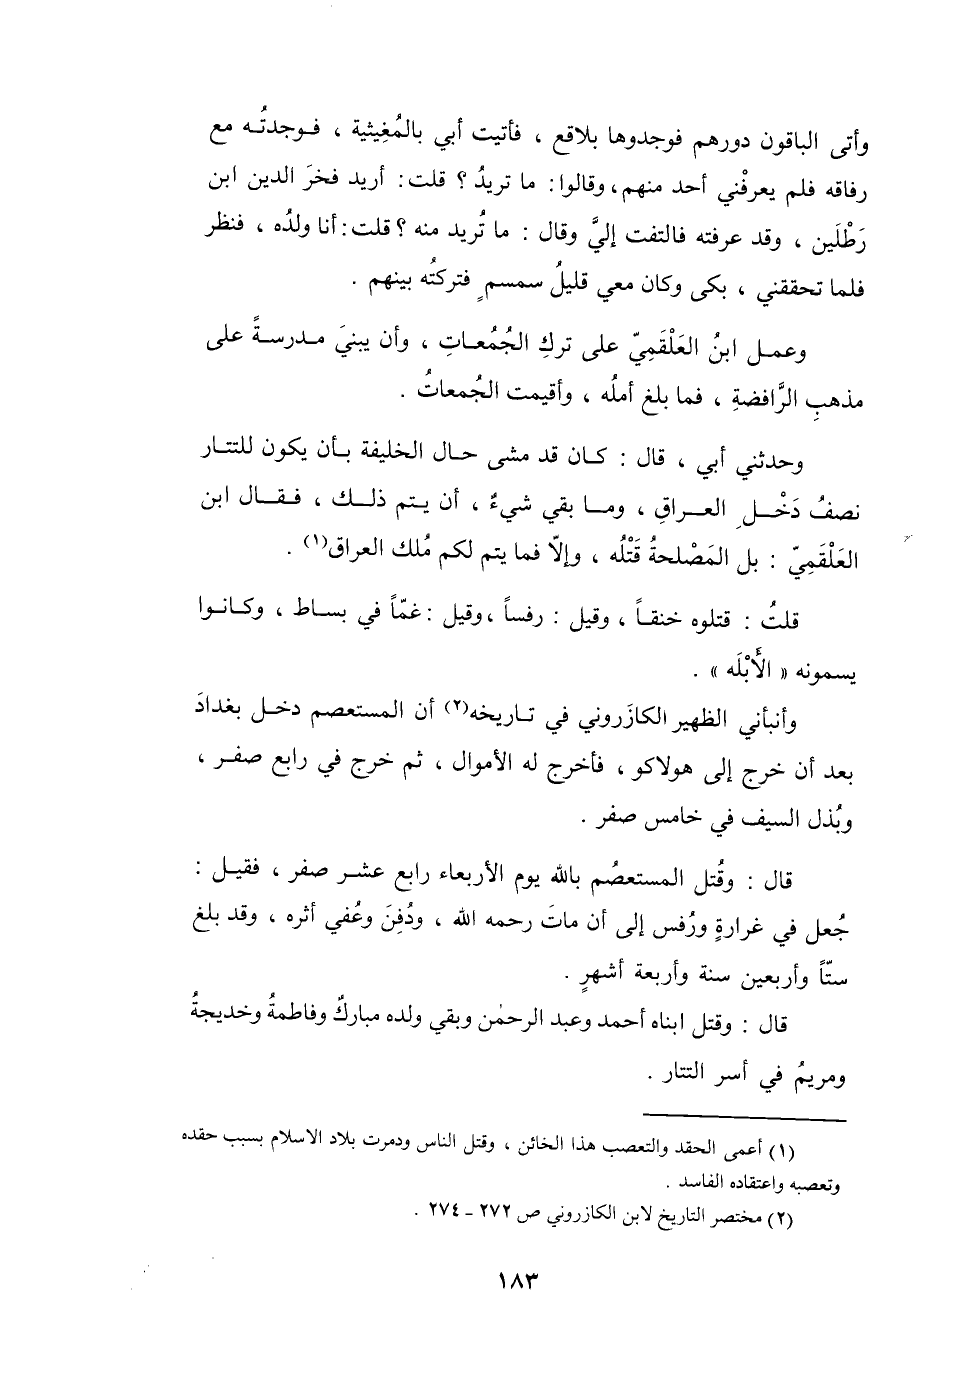 وأتى الباقون دورهم فوجدوها بلاقع ، فأتيت أبي بالمُغِيثية ، فوجدتُه مع
رفاقه فلم يعرفْني أحد منهم، وقالوا: ما تريدُ ؟ قلت: أريد فخرَ الدين ابن
رَطْلَين ، وقد عرفته فالتفت إليَّ وقال : ما تُريد منه ؟ قلت: أنا ولدُه ، فنظر
فلما تحققني ، بكى وكان معي قليلُ سمسمٍ فتركتُه بينهم .
وعمل ابنُ العَلْقَمِيّ على تركِ الجُمُعاتِ ، وأن يبنيَ مدرسةً على
مذهبِ الرَّافضةِ ، فما بلغ أملُه ، وأقيمت الجُمعاتُ .
وحدثني أبي ، قال : كان قد مشى حال الخليفة بأن يكون للتتار
نصفُ دَخْلِ العراقِ ، وما بقي شيءٌ ، أن يتم ذلك ، فقال ابن
العَلْقَمِيّ : بل المَصْلحةُ قَتْلُه ، وإلاّ فما يتم لكم مُلك العراق(١) .
قلتُ : قتلوه خنقاً ، وقيل : رفساً ،وقيل :غمّاً في بساط ، وكانوا
يسمونه « الأَبْلَه » .
وأنبأني الظهير الكازَروني في تاريخه(٢) أن المستعصم دخل بغدادَ
بعد أن خرج إلى هولاكو ، فأخرج له الأموال ، ثم خرج في رابع صفر ،
وبُذل السيف في خامس صفر .
قال : وقُتل المستعصُم بالله يوم الأربعاء رابع عشر صفر ، فقيل :
جُعل في غرارةٍ ورُفس إلى أن ماتَ رحمه الله ، ودُفِنَ وعُفي أثره ، وقد بلغ
ستّاً وأربعين سنة وأربعة أشهرٍ .
قال : وقتل ابناه أحمد وعبد الرحمٰن وبقي ولده مباركٌ وفاطمةُ وخديجةُ
ومريمُ في أسر التتار .
(١) أعمى الحقد والتعصب هذا الخائن ، وقتل الناس ودمرت بلاد الاسلام بسبب حقده
وتعصبه واعتقاده الفاسد .
(٢) مختصر التاريخ لابن الكازروني ص ٢٧٢ - ٢٧٤ .
١٨٣